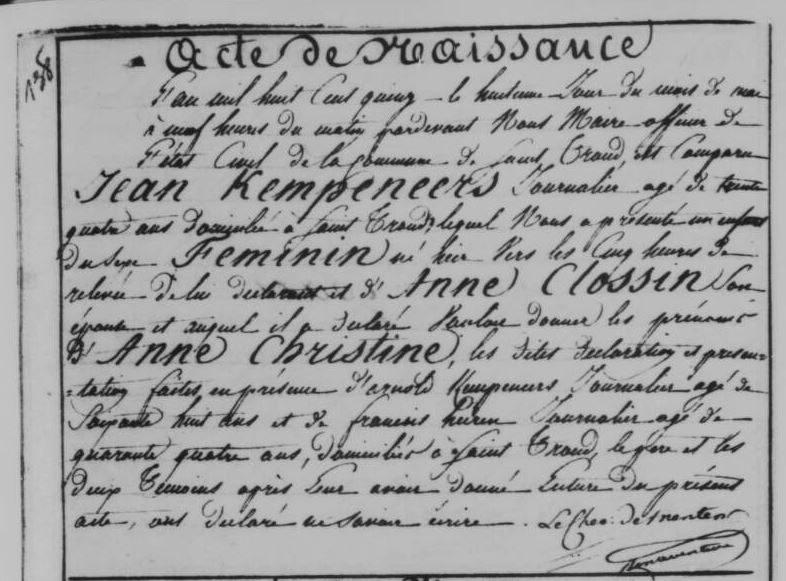 138
Acte de Naissance
L'an mil huit Cent quinz le huitieme Jour du mois de mai
à neuf heures du matin pardevant Nous Maire officier de
l'état Civil de la Commune de Saint Trond, est Comparu
Jean Kempeneers Journalier agé de trente
quatre ans domicilié à Saint Trond, lequel Nous a présenté un enfant
du Sexe Feminin né hier Vers les Cinq heures de
relevée de lui declarant et d'Anne Clossin Son
épouse et auquel il a déclaré Vouloir donner les prénoms
d'Anne Christine, les dites déclaration et présen=
=tation faites en présence d'arnold Kempeneers Journalier agé de
Soixante huit ans et de francois Journalier agé de
quarante quatre ans, domiciliés à Saint Trond, le pere et les
deux Temoins après Leur avoir donné Lecture du présent
acte, ont declaré ne Savoir écrire. Le Chev: de